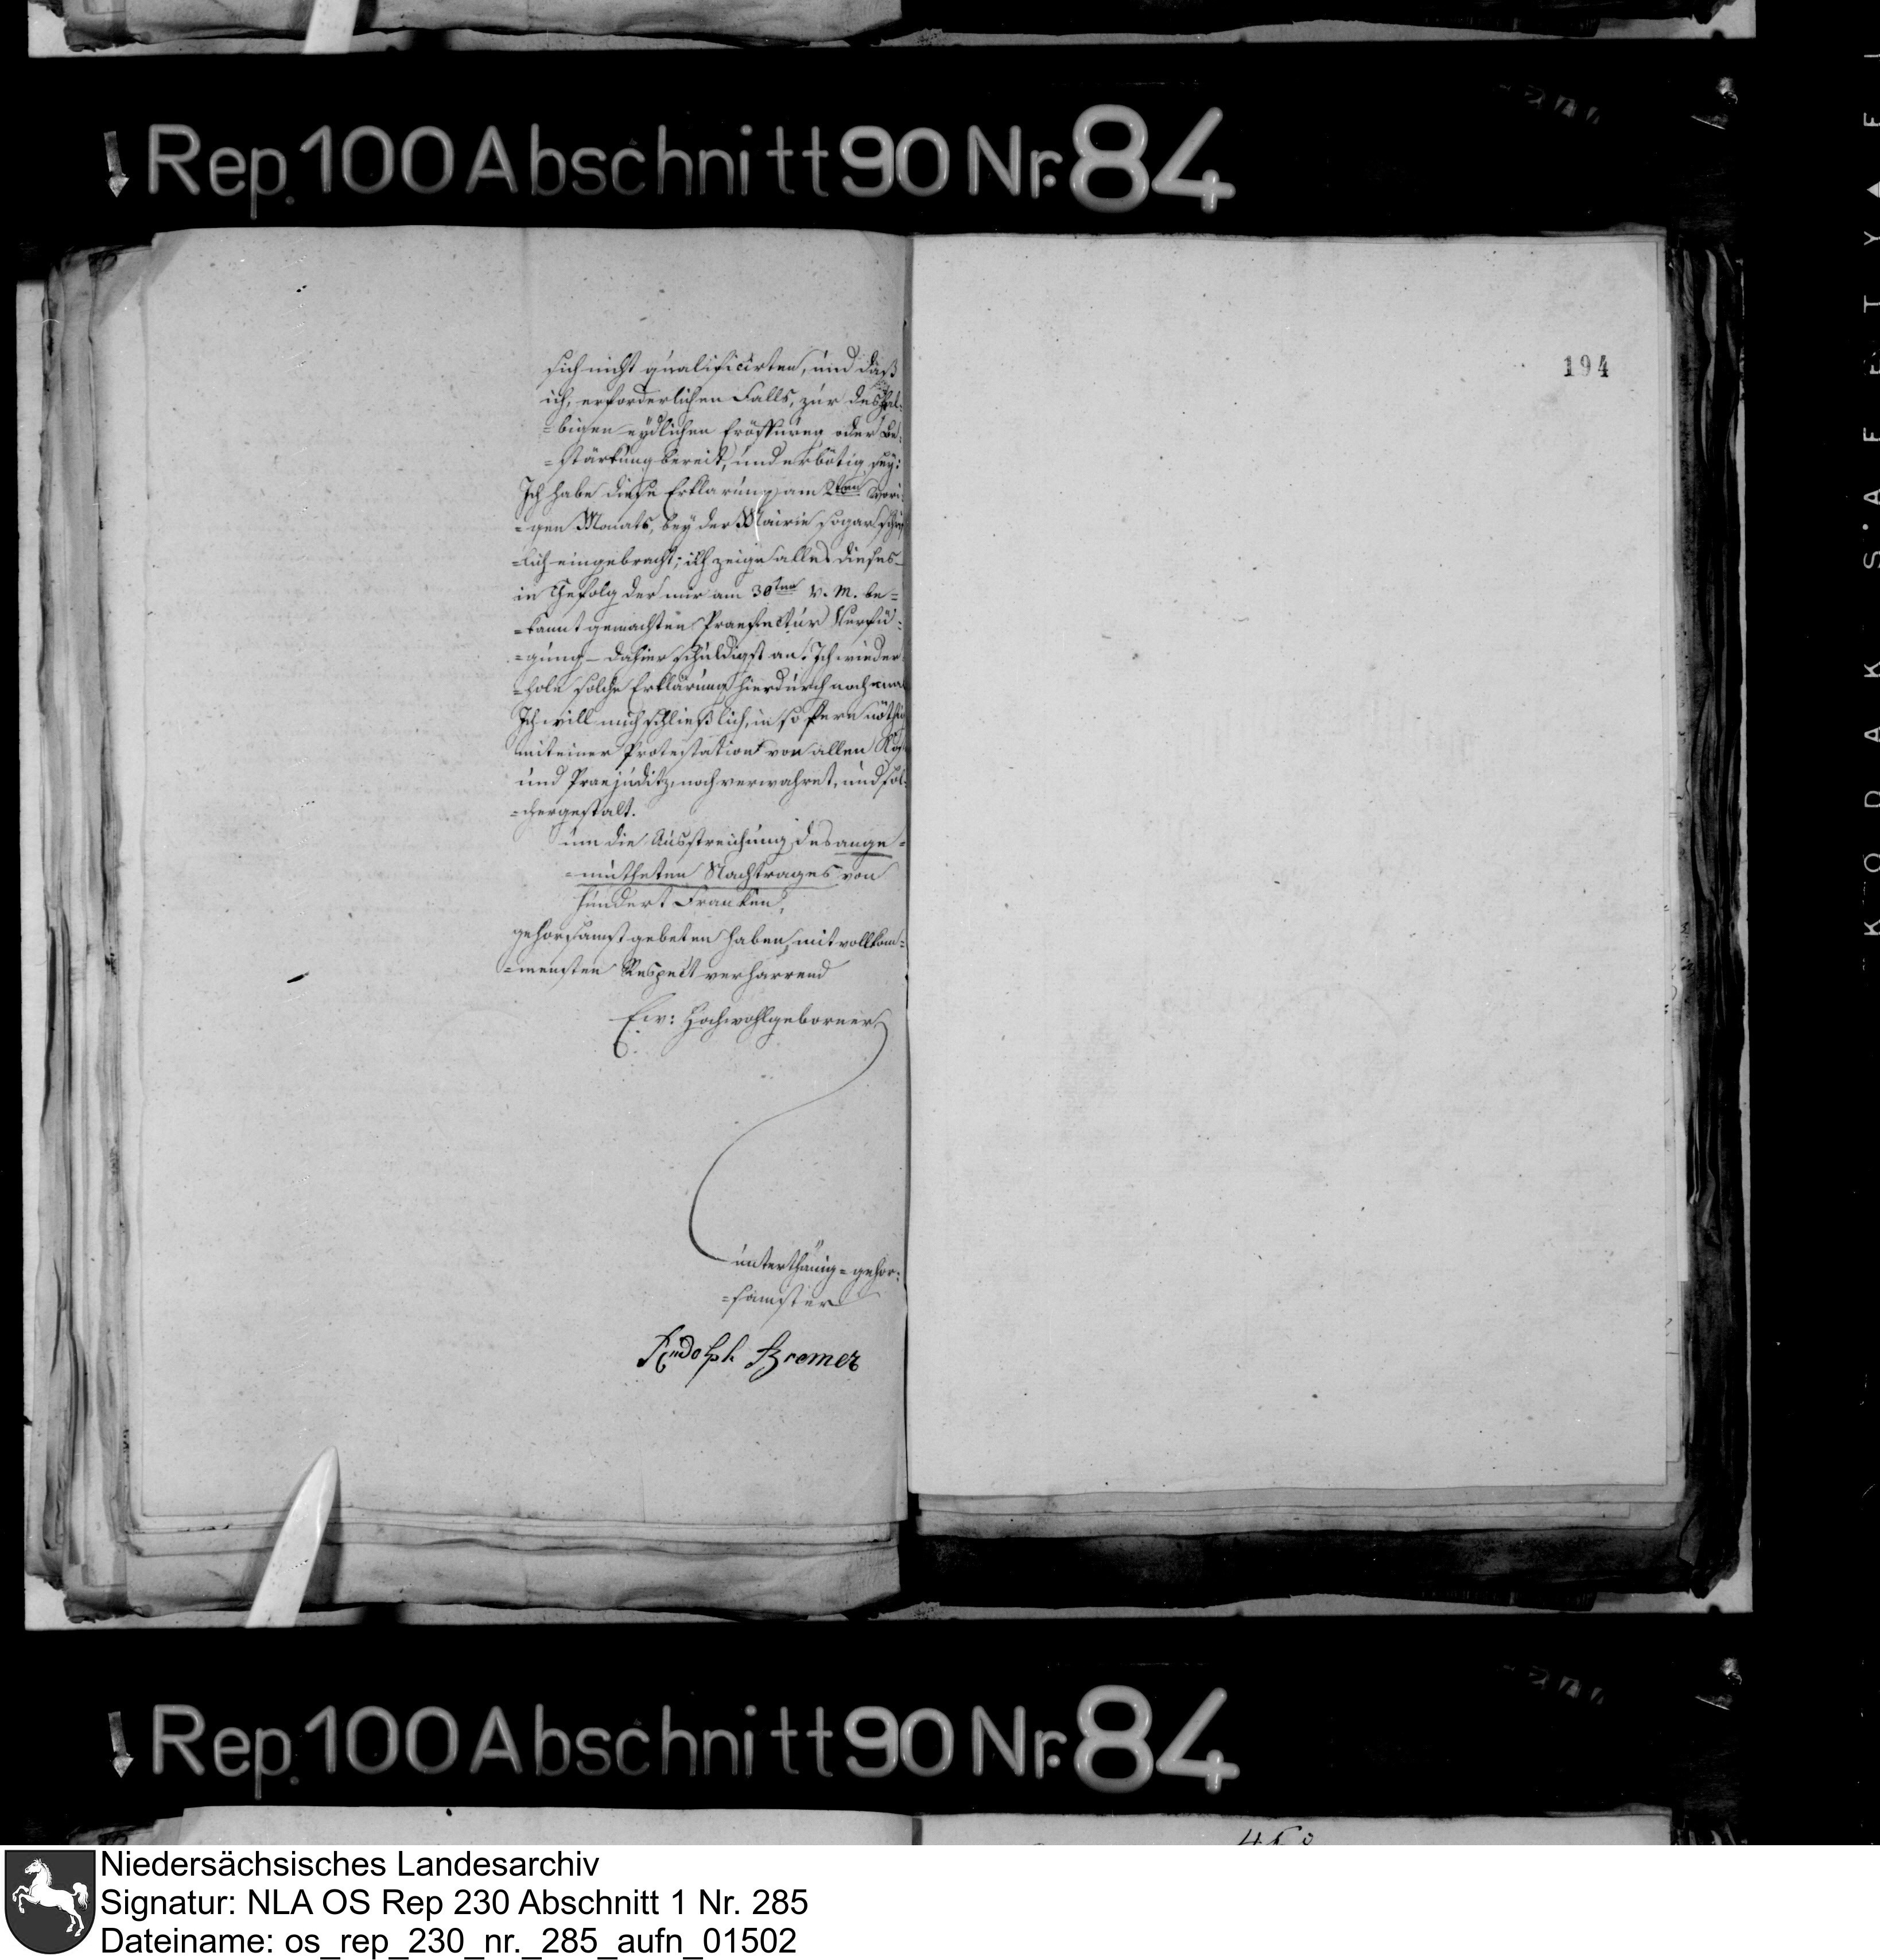 Rep. 100 Abschnitt 90 Nr. 84
194
sich nicht qualificirten, und daß
ich, erforderlichen Falls, zur deshal-
=bigen eydlichen Eröffnung oder Be-
=stärkung bereit, und erbötig sey:
Ich habe diese Erklarung am 2ten vori-
=gen Monats, bey der Mairie sogar
=lich eingebracht; ich zeige alles dieses
in Gefolg der mir am 30ten v. M. be=
=kannt gemachten Praefectur Verfü=
=gung - dahier schuldigst an. Ich wieder
=hole solche Erklärung hierdurch nochmal
Ich will mich schließlich, in so fern nöthig
mit einer Protestation von allen
und Praejuditz, noch verwahret, und sol-
=chergestalt.
um die Ausstreichung des ange=
=mutheten Nachtrages von
hundert Franken,
gehorsamst gebeten haben, mit vollkom=
=mensten Respect verharrend
Ew: Hochwohlgeborner
unterthänig=gehor=
=samster
Rudolph Bremer
Rep. 100 Abschnitt 90 Nr. 84
KODAK SAFETY
Niedersächsisches Landesarchiv
Signatur: NLA OS Rep 230 Abschnitt 1 Nr. 285
Dateiname: os_rep_230_nr._285_aufn_01502